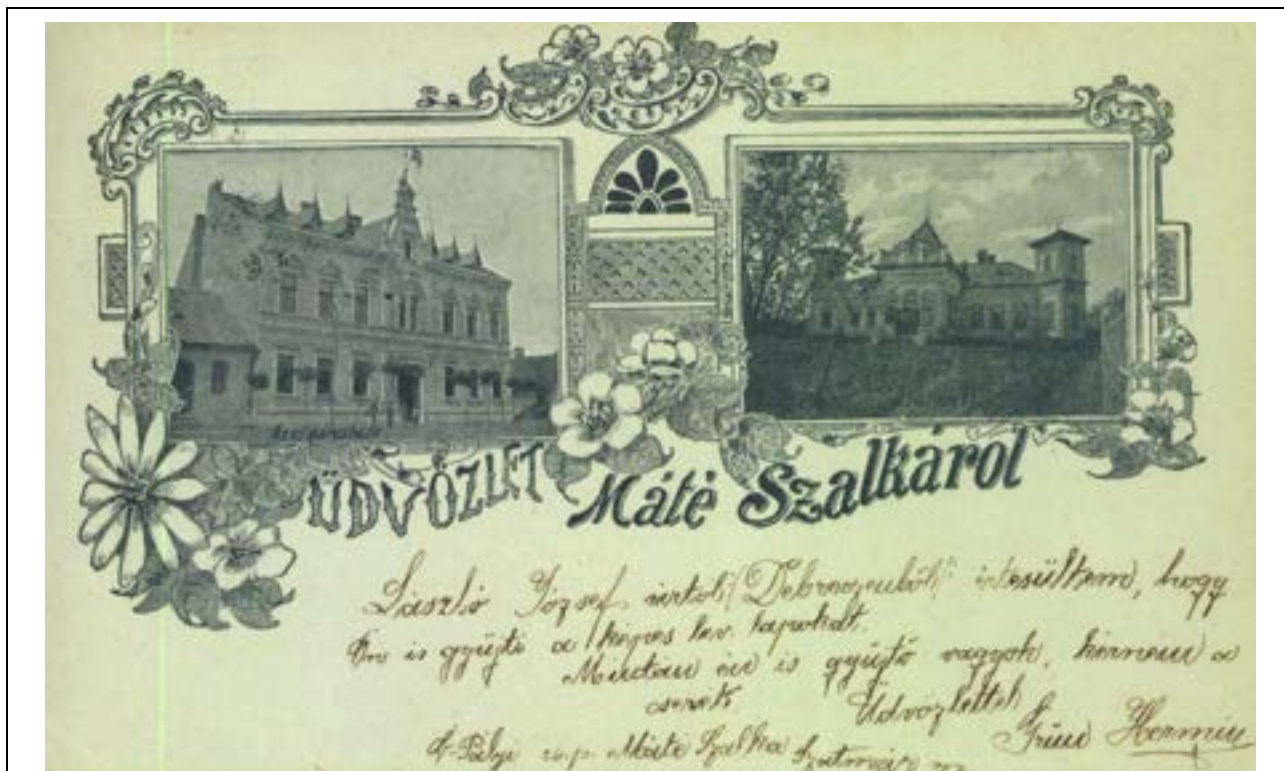 ÜDVÖZLET Máté Szalkáról
László József úrtól "Debreczenből" értesültem, hogy
Ön is gyűjti a képes lev. lapokat.
Miután én is gyűjtő vagyok, kérném a
cserét
Üdvözlettel
Hermin
Máté Szalka Szatmár m.